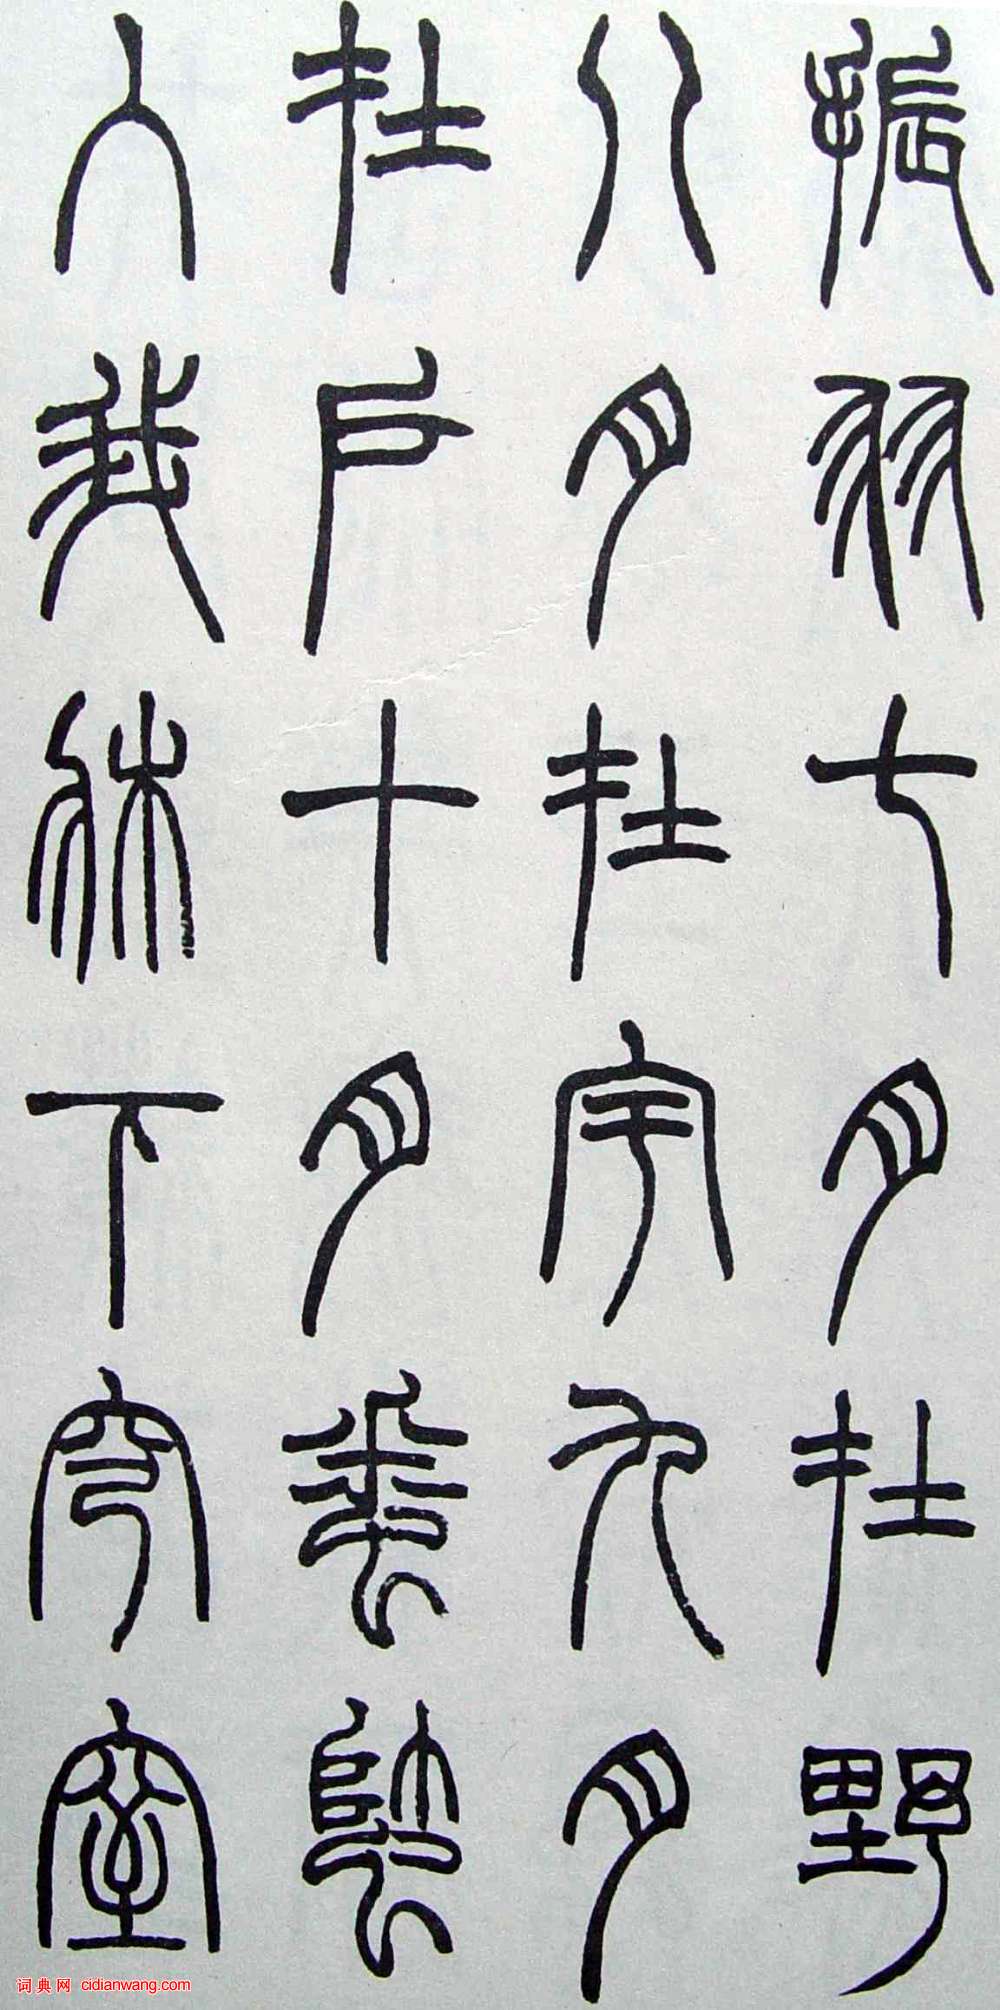 振羽七月在野
八月在宇九月
在戶十月蟋蟀
入我牀下穹窒
词典网 cidianwang.com